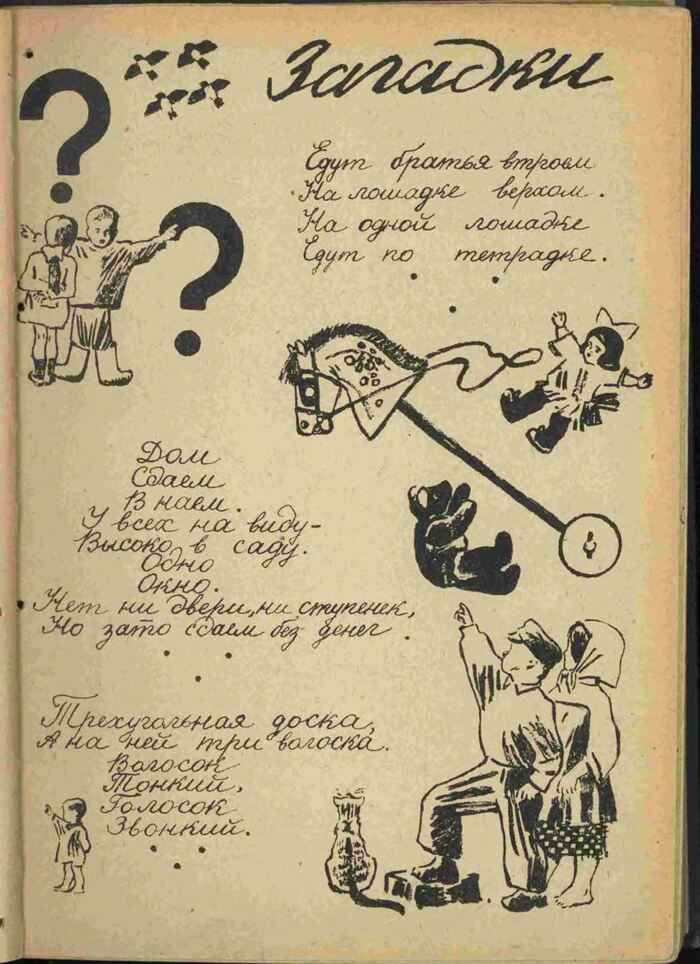 Загадки
Едут братья втроем
На лошадке верхом.
На одной лошадке
Едут по тетрадке.
Дом
Сдаем
В наем.
У всех на виду-
Высоко в саду.
Одно
Окно.
Нет ни двери, ни ступенек,
Но зато сдаем без денег.
Трехугольная доска,
А на ней три волоска.
Волосок
Тонкий,
Голосок
Звонкий.